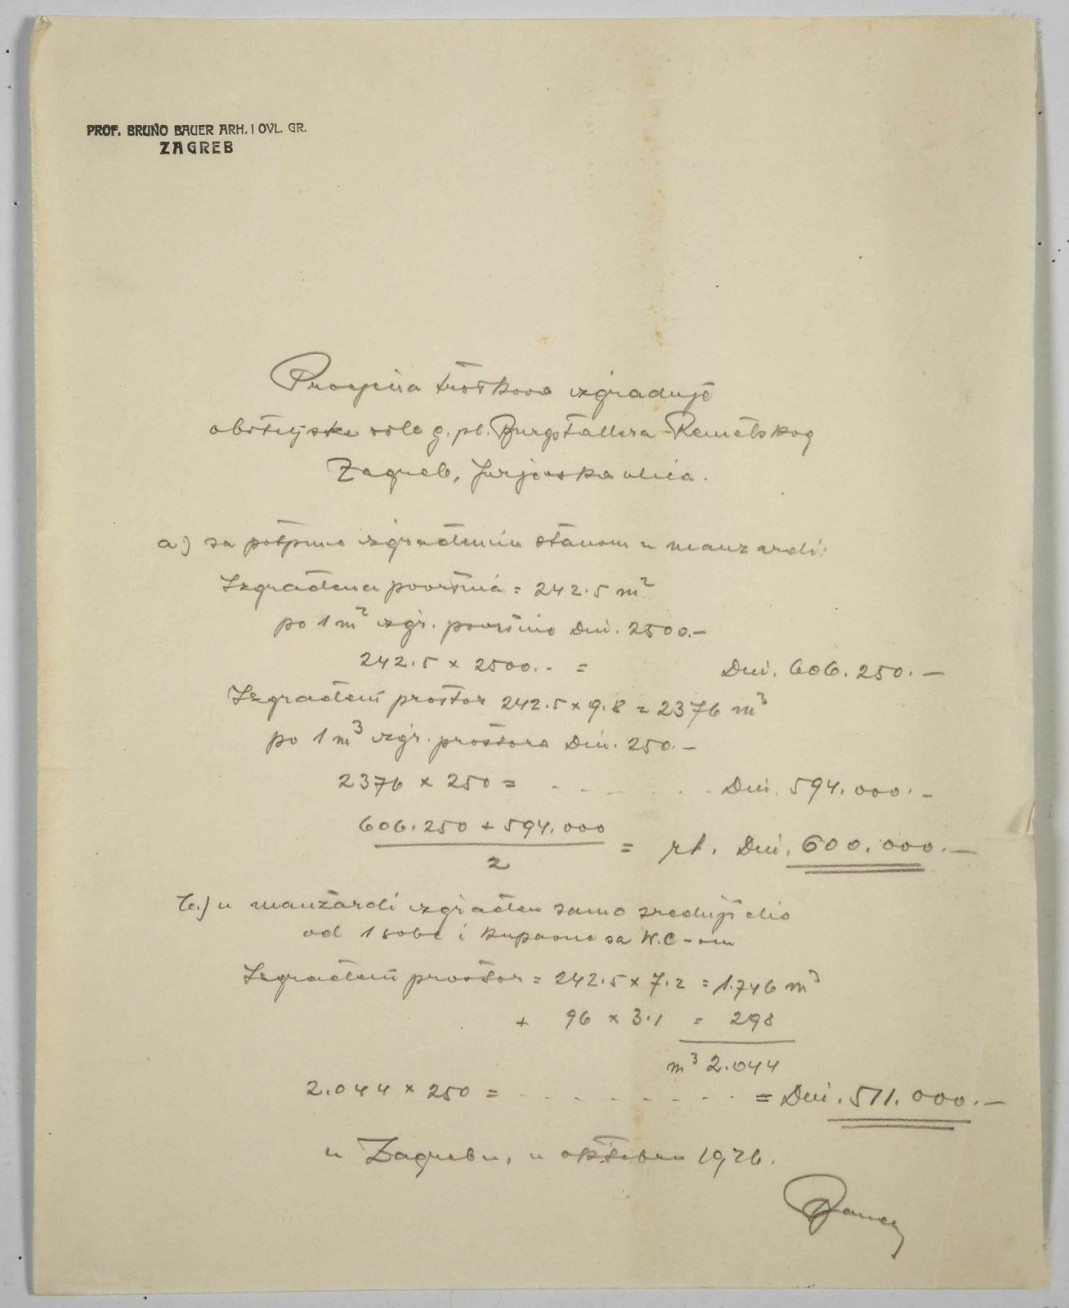 PROF. BRUNO BAUER ARH. I OVL. GR.
ZAGREB
Procjena troškova izgradnje
obiteljske vile g. pl. Burgstallera-Remetskog
Zagreb, Jurjevska ulica.
a) sa potpuno izgrađenim stanom u manzardi:
Izgrađena površina = 242.5 m²
po 1 m² izgr. površine Din. 2500.–
242.5 × 2500.– = Din. 606.250.–
Izgrađeni prostor 242.5 × 9.8 = 2376 m³
po 1 m³ izgr. prostora Din. 250.–
2376 × 250 = . . . . . . Din. 594.000.–
606.250 + 594.000
2
= rd. Din. 600.000.–
b.) u manzardi izgrađen samo srednji dio
od 1 sobe i kupaone sa W.C-om
Izgrađeni prostor = 242.5 × 7.2 = 1.746 m³
+ 96 × 3.1 = 298
m³ 2.044
2.044 × 250 = . . . . . . . . = Din. 511.000.–
u Zagrebu, u oktobru 1926.
Bauer